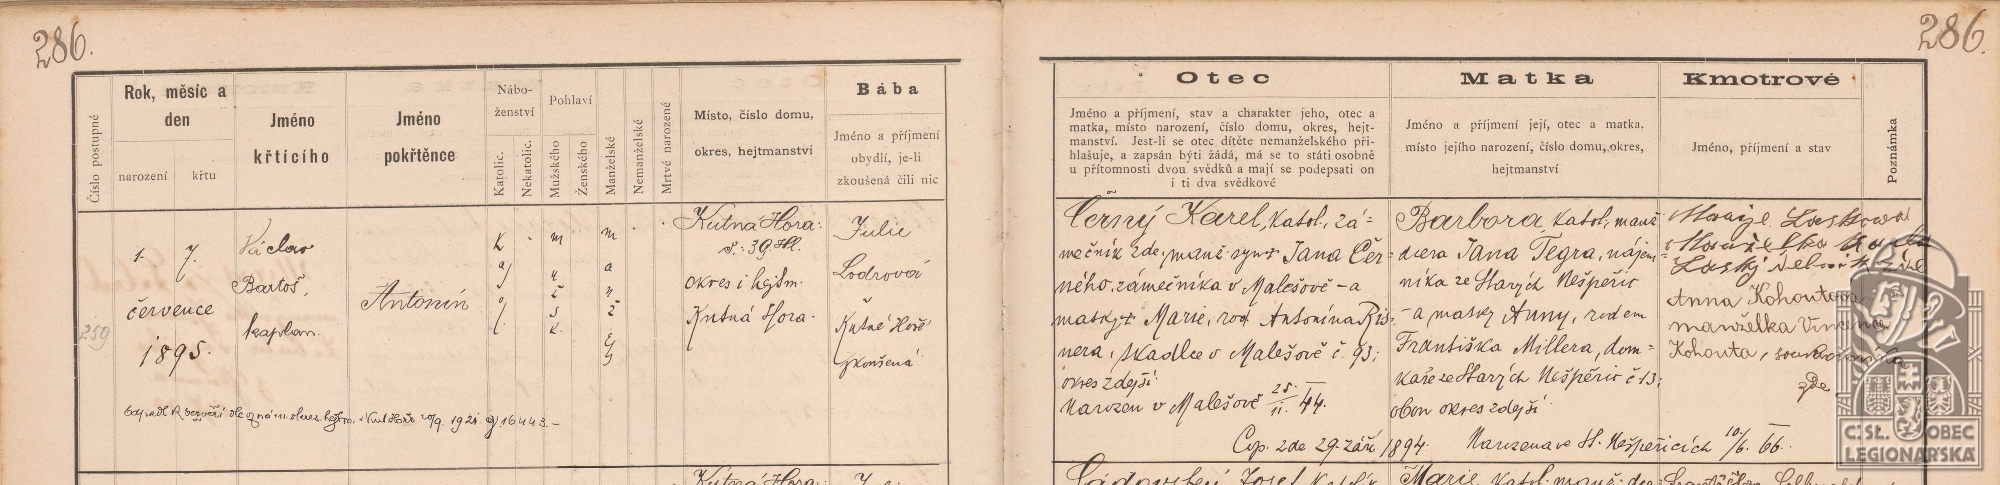 286.
286.
Číslo postupné
Rok, měsíc a
den
narození
křtu
Jméno
křtícího
Jméno
pokřtěnce
Nábo-
ženství
Katolic.
Nekatolic.
Pohlaví
Mužského
Ženského
Manželské
Nemanželské
Mrtvě narozené
Místo, číslo domu,
okres, hejtmanství
Bába
Jméno a příjmení
obydlí, je-li
zkoušená čili nic
Otec
Jméno a příjmení, stav a charakter jeho, otec a
matka, místo narození, číslo domu, okres, hejt-
manství. Jest-li se otec dítěte nemanželského při-
hlašuje, a zapsán býti žádá, má se to státi osobně
u přítomnosti dvou svědků a mají se podepsati on
i ti dva svědkové
Matka
Jméno a příjmení její, otec a matka,
místo jejího narození, číslo domu, okres,
hejtmanství
Kmotrové
Jméno, příjmení a stav
Poznámka
259
1. 7.
července
1895.
Václav
Bartoš,
kaplan.
Antonín
Kutná Hora:
č. 39 Hl.
okres i hejtm.
Kutná Hora.
Julie
Lodrová
Kutné Hoře
zkoušená
Černý Karel, katol., zá-
mečník zde, manž. syn † Jana Čer-
ného, zámečníka v Malešově – a
matky † Marie, roz. Antonína Ris-
nera, tkadlce v Malešově č. 93;
okres zdejší
Narozen v Malešově 25./11. 44.
Cop. zde 29. září 1894.
Barbora, katol., manž.
dcera Jana Tégra, nájem-
níka ze Starých Nešpeřic
– a matky Anny, rodem
Františka Millera, dom-
káře ze Starých Nešpeřic č 13;
obou okres zdejší
Narozena ve St. Nešpeřicích 10./6. 66.
Marie
Manželka
Anna Kohoutova
manželka Vincence
Kohouta,
zde
1921 čj. 16443.-
Kutná Hora:
Josef
Marie, katol. manž. dce-
Č.SL. OBEC
LEGIONÁŘSKÁ